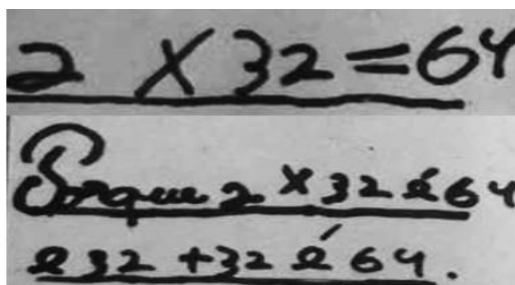 2 X 32 = 64
Porque 2 X 32 é 64
e 32 + 32 é 64.